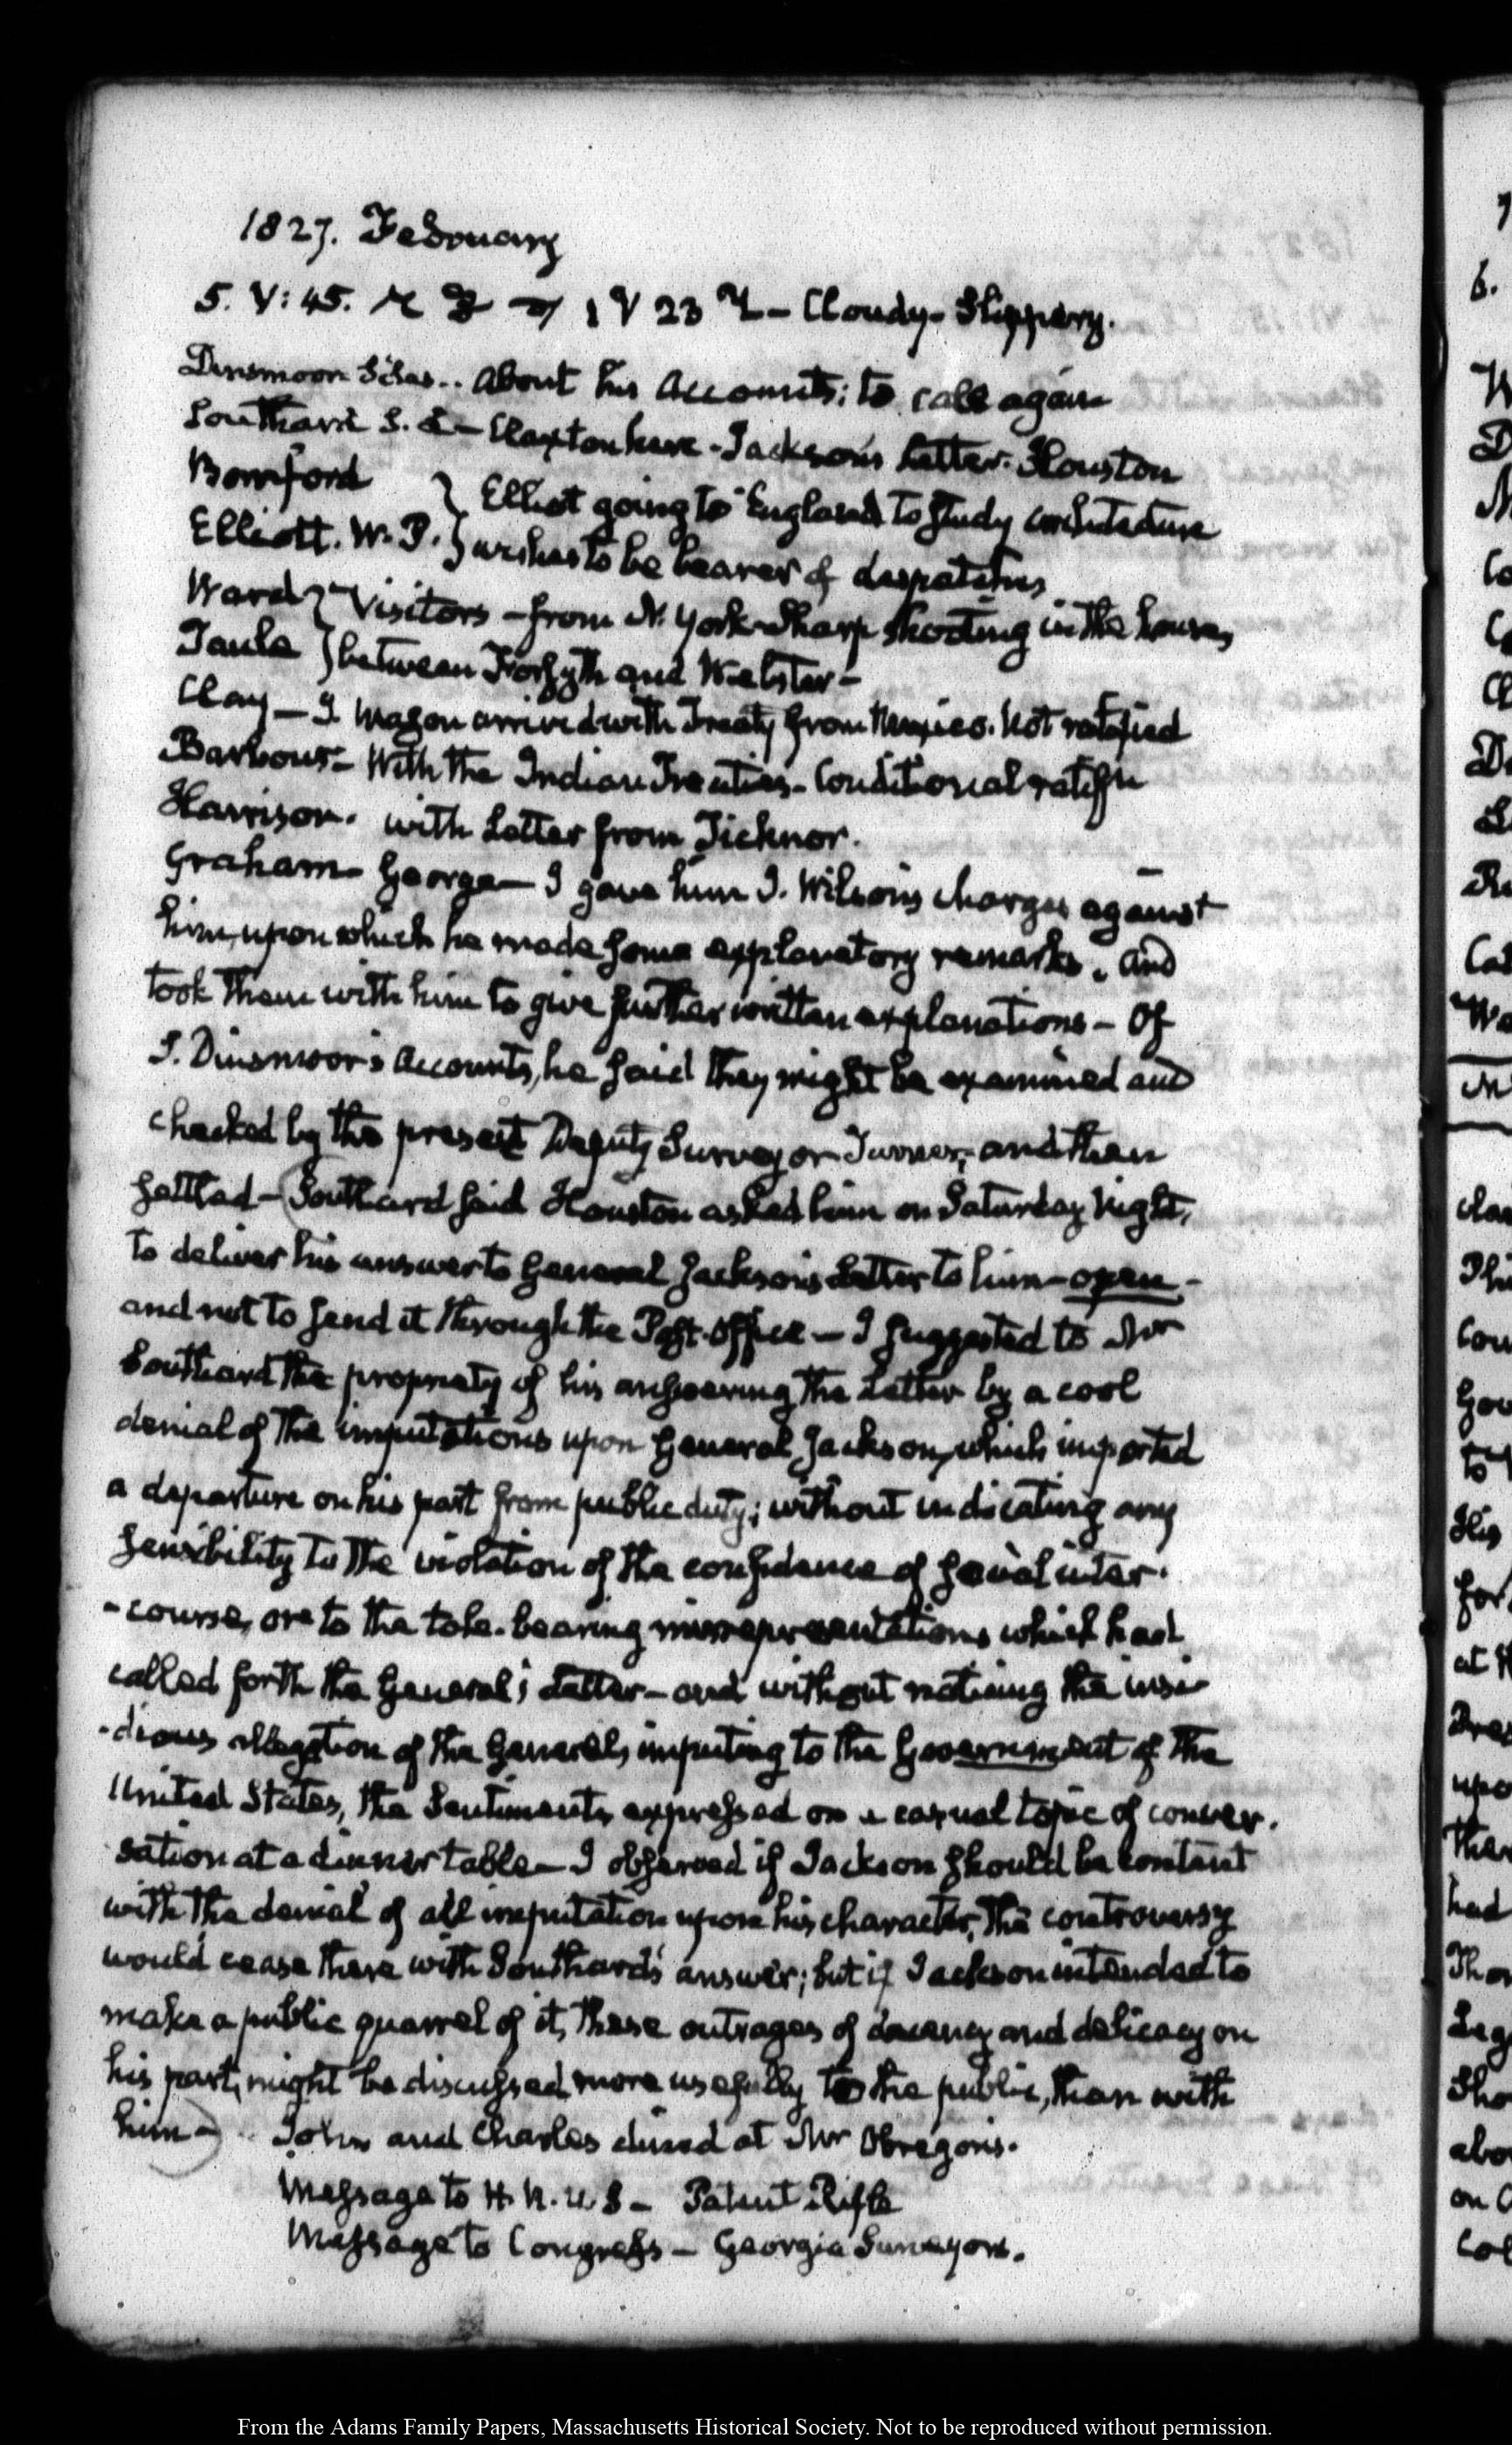 1827. February
5. V: 45. 1 V 23 – Cloudy – Slippery.
Dinsmoor Silas.. about his Accounts; to call again
Southard S. L – Claxton here – Jackson's Letter – Houston
Bomford } Elliot going to England to study architecture
Elliott. W. P. } wishes to be bearer of despatches
Ward } Visitors – from N. York – Sharp shooting in the house,
} between Forsyth and Webster –
Clay – I. Mason arrived with Treaty from Mexico. Not ratified
Barbour – With the Indian Treaties – Conditional ratifn
Harrison. with Letter from Ticknor.
Graham – George – I gave him I. Wilson's charges against
him, upon which he made some explanatory remarks, and
took them with him to give further written explanations – Of
S. Dinsmoor's Accounts, he said they might be examined and
checked by the present Deputy Surveyor Turner, and then
settled – (Southard said Houston asked him on Saturday Night,
to deliver his answer to General Jackson's Letter to him – open –
and not to send it through the Post-Office – I suggested to Mr
Southard the propriety of his answering the Letter by a cool
denial of the imputations upon General Jackson, which imported
a departure on his part from public duty; without indicating any
sensibility to the violation of the confidence of social inter-
-course, or to the tale-bearing misrepresentations which had
called forth the General's Letter – and without noticing the insi-
-dious allegation of the General, imputing to the Government of the
United States, the Sentiments expressed on a casual topic of conver-
sation at a dinner table – I observed if Jackson should be content
with the denial of all imputation upon his character, the controversy
would cease there with Southard's answer; but if Jackson intended to
make a public quarrel of it, these outrages of decency and delicacy on
his part, might be discussed more usefully to the public, than with
him –) .. John and Charles dined at Mr Obregon's.
Message to H. R. U. S – Patent Rifle
Message to Congress – Georgia Surveyors.
From the Adams Family Papers, Massachusetts Historical Society. Not to be reproduced without permission.